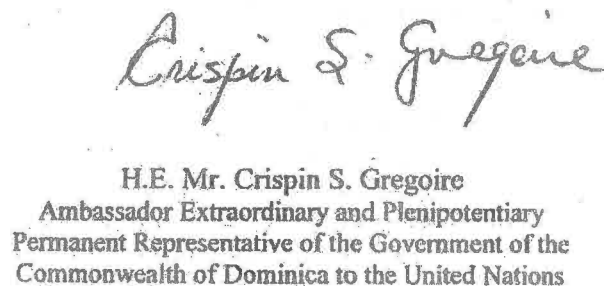 Crispin S. Gregoire
H.E. Mr. Crispin S. Gregoire
Ambassador Extraordinary and Plenipotentiary
Permanent Representative of the Government of the
Commonwealth of Dominica to the United Nations